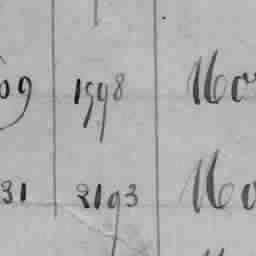 09 1598 Mo
31 2193 Mo